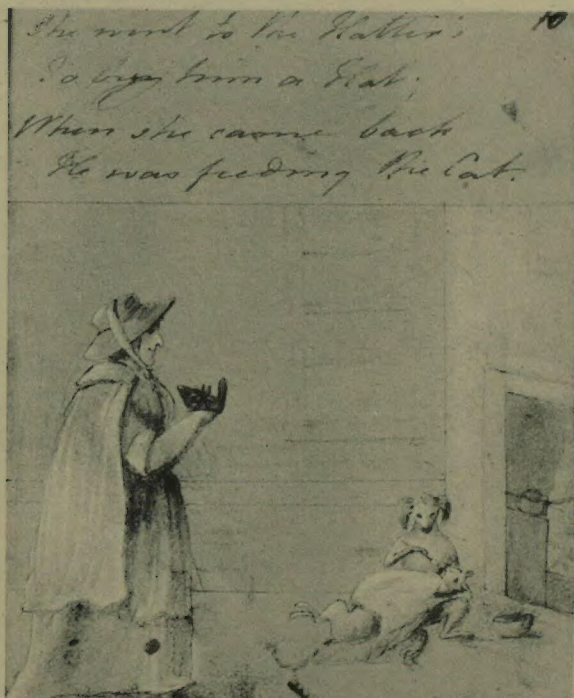 She went to the Hatter's 10
To buy him a Hat;
When she came back
He was feeding the Cat.